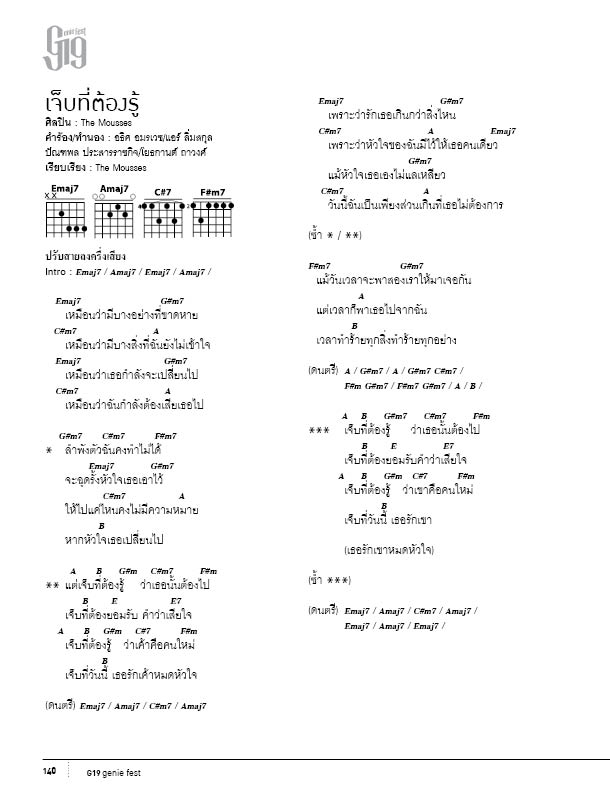 genie fest
G19
เจ็บที่ต้องรู้
ศิลปิน : The Mousses
คำร้อง/ทำนอง : อธิศ อมรเวช/แอร์ ลิ่มสกุล
ปัณฑพล ประสารราชกิจ/โยธกานต์ ถาวงศ์
เรียบเรียง : The Mousses
Emaj7 Amaj7 C#7 F#m7
ปรับสายลงครึ่งเสียง
Intro : Emaj7 / Amaj7 / Emaj7 / Amaj7 /
Emaj7 G#m7
เหมือนว่ามีบางอย่างที่ขาดหาย
C#m7 A
เหมือนว่ามีบางสิ่งที่ฉันยังไม่เข้าใจ
Emaj7 G#m7
เหมือนว่าเธอกำลังจะเปลี่ยนไป
C#m7 A
เหมือนว่าฉันกำลังต้องเสียเธอไป
G#m7 C#m7 F#m7
* ลำพังตัวฉันคงทำไม่ได้
Emaj7 G#m7
จะฉุดรั้งหัวใจเธอเอาไว้
C#m7 A
ให้ไปแค่ไหนคงไม่มีความหมาย
B
หากหัวใจเธอเปลี่ยนไป
A B G#m C#m7 F#m
** แต่เจ็บที่ต้องรู้ ว่าเธอนั้นต้องไป
B E E7
เจ็บที่ต้องยอมรับ คำว่าเสียใจ
A B G#m C#7 F#m
เจ็บที่ต้องรู้ ว่าเค้าคือคนใหม่
B
เจ็บที่วันนี้ เธอรักเค้าหมดหัวใจ
(ดนตรี) Emaj7 / Amaj7 / C#m7 / Amaj7
Emaj7 G#m7
เพราะว่ารักเธอเกินกว่าสิ่งไหน
C#m7 A Emaj7
เพราะว่าหัวใจของฉันมีไว้ให้เธอคนเดียว
G#m7
แม้หัวใจเธอเองไม่แลเหลียว
C#m7 A
วันนี้ฉันเป็นเพียงส่วนเกินที่เธอไม่ต้องการ
(ซ้ำ * / **)
F#m7 G#m7
แม้วันเวลาจะพาสองเราให้มาเจอกัน
A
แต่เวลาก็พาเธอไปจากฉัน
B
เวลาทำร้ายทุกสิ่งทำร้ายทุกอย่าง
(ดนตรี) A / G#m7 / A / G#m7 C#m7 /
F#m G#m7 / F#m7 G#m7 / A / B /
A B G#m7 C#m7 F#m
*** เจ็บที่ต้องรู้ ว่าเธอนั้นต้องไป
B E E7
เจ็บที่ต้องยอมรับคำว่าเสียใจ
A B G#m C#7 F#m
เจ็บที่ต้องรู้ ว่าเขาคือคนใหม่
B
เจ็บที่วันนี้ เธอรักเขา
(เธอรักเขาหมดหัวใจ)
(ซ้ำ ***)
(ดนตรี) Emaj7 / Amaj7 / C#m7 / Amaj7 /
Emaj7 / Amaj7 / Emaj7 /
140 G19 genie fest